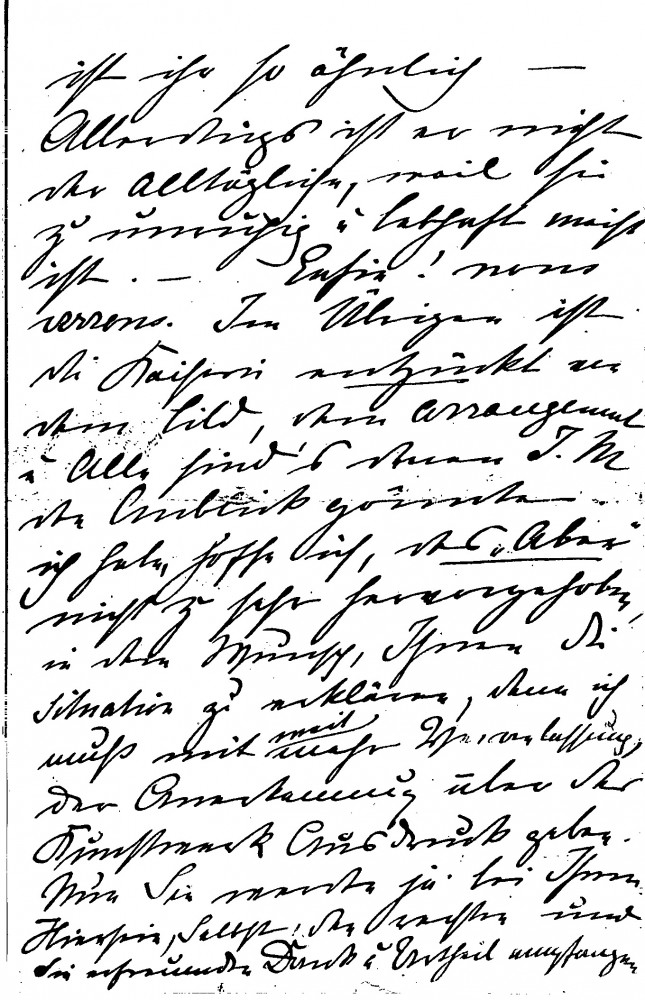 ist ihr so ähnlich —
Allerdings ist er nicht
der alltägliche, weil sie
zu unruhig u lebhaft meist
ist. — Enfin! nous
verrons. Im Übrigen ist
die Kaiserin entzückt von
dem Bild, dem Arrangement
u Alle sind's denen I. M
den Anblick gönnte.
ich habe, hoffe ich, das „Aber"
nicht zu sehr hervorgehoben,
in dem Wunsch, Ihnen die
Situation zu erklären, denn ich
muß mit weit mehr Veranlassung,
der Anerkennung über das
Kunstwerk Ausdruck geben.
Nun Sie werden ja bei Ihrem
Hiersein, Selbst, den rechten und
Sie erfreuenden Dank u Urtheil empfangen